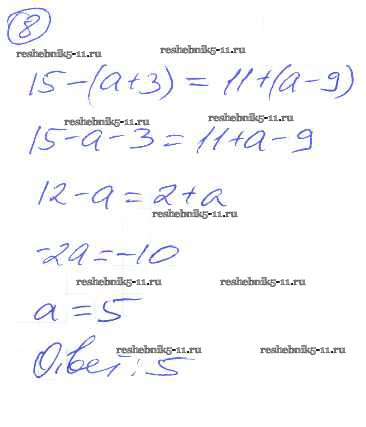 8
reshebnik5-11.ru reshebnik5-11.ru
15-(a+3) = 11+(a-9)
reshebnik5-11.ru reshebnik5-11.ru
15-a-3=11+a-9
12-a=2+a
reshebnik5-11.ru
-2a=-10
reshebnik5-11.ru reshebnik5-11.ru
a=5
reshebnik5-11.ru reshebnik5-11.ru
Ответ: 5